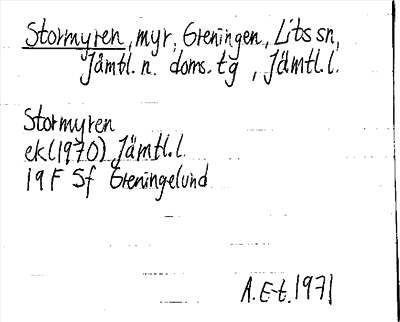 Stormyren, myr, Greningen, Lits sn,
Jämtl. n. doms. tg, Jämtl. l.
Stormyren
ek (1970) Jämtl. l.
19 F 5f Greningelund
A. E-t. 1971